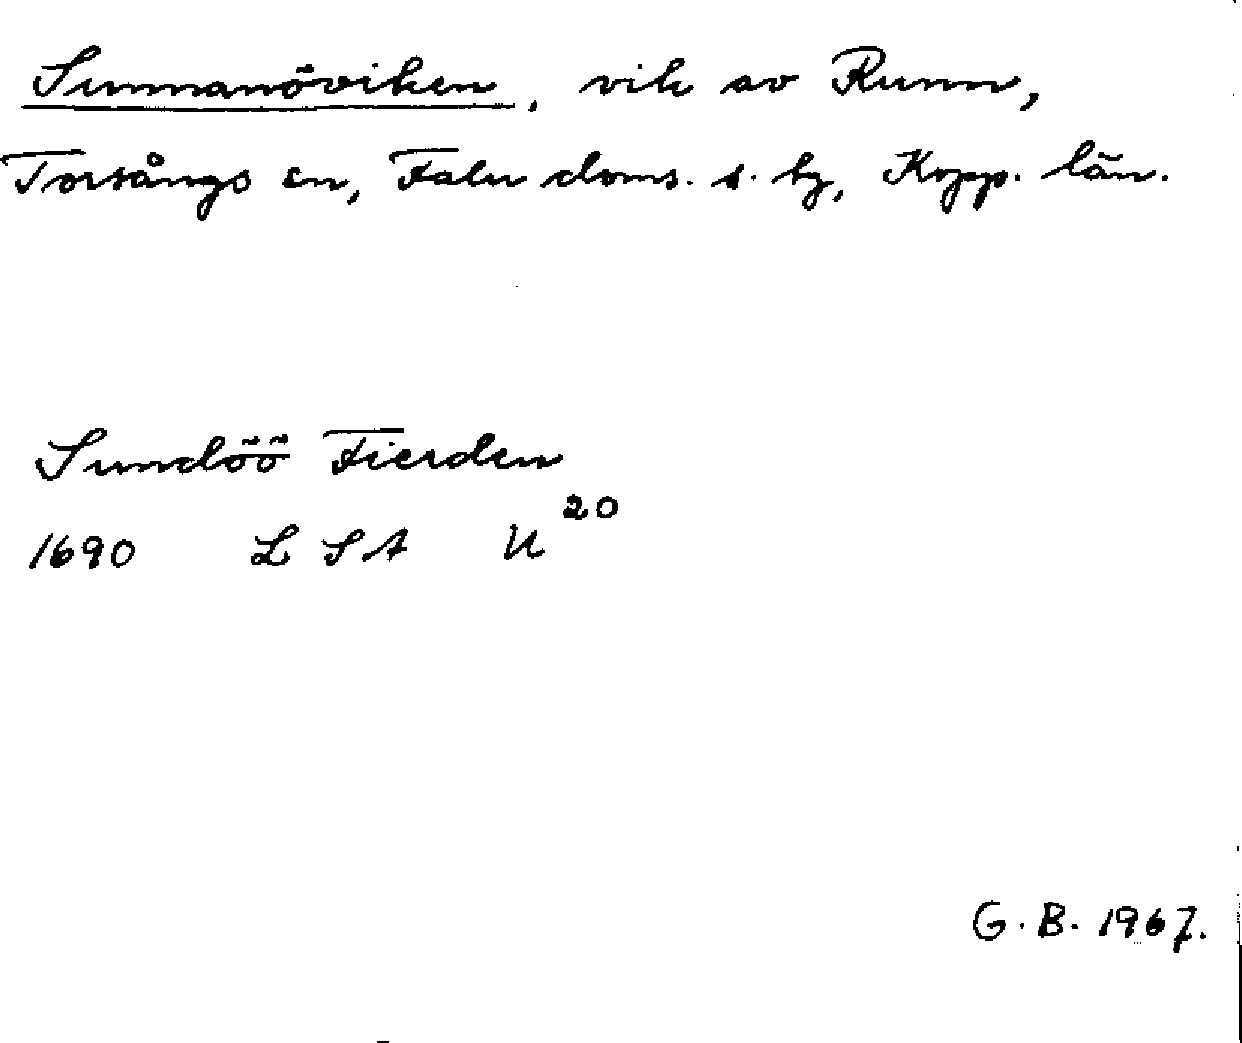 Sunnanöviken, vik av Runn,
Torsångs sn, Falu doms. s. tg, Kopp. län.
Sundöö Fierden
1690 L S A U 20
G. B. 1967.